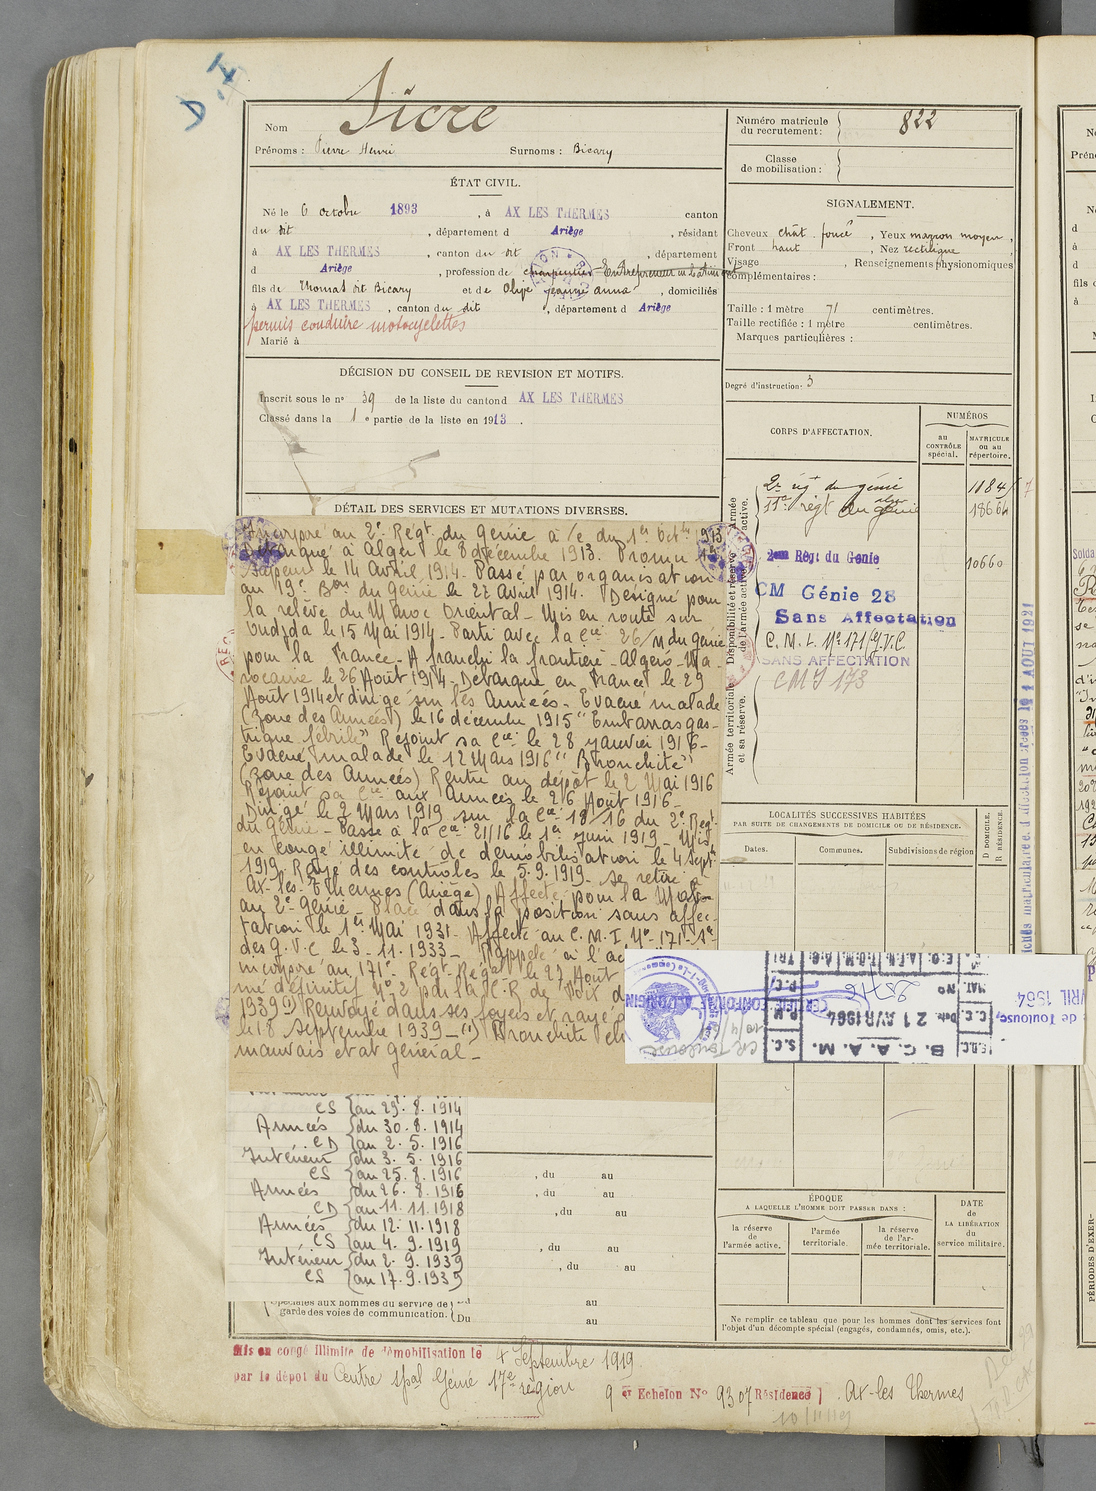 D.I
Nom Sicre
Prénoms : Pierre Henri Surnoms : Bicary
ÉTAT CIVIL.
Né le 6 octobre 1893, à AX LES THERMES canton
du dit, département d Ariège, résidant
à AX LES THERMES, canton du dit, département
d Ariège, profession de charpentier - Entrepreneur en batiment
fils de Thomas dit Bicary et de Olive jeanne anna, domiciliés
à AX LES THERMES, canton du dit, département d Ariège
permis conduire motocyclettes
Marié à
DÉCISION DU CONSEIL DE REVISION ET MOTIFS.
Inscrit sous le n° 39 de la liste du canton d AX LES THERMES
Classé dans la 1 e partie de la liste en 1913.
DÉTAIL DES SERVICES ET MUTATIONS DIVERSES.
Incorporé au 2e Régt du Génie à /c du 1er Octbre 1913
à Alger le 8 décembre 1913. Promu
Sapeur le 14 Avril 1914. Passé par organisation
au 19e Bon du génie le 27 Avril 1914. Designé pour
la relève du Maroc Oriental - Mis en route sur
Oudjda le 15 Mai 1914 - Parti avec la Cie 26/ du génie
pour la France - A franchi la frontière Algero-Ma
rocaine le 26 Août 1914 - Debarqué en France le 29
Août 1914 et dirigé sur les Armées - Evacué malade
(zone des Armées) le 16 décembre 1915 "Embarras gas-
trique fébrile" Rejoint sa Cie le 28 janvier 1916 -
Evacué malade le 12 Mars 1916 "Bronchite"
(zone des Armées) Rentré au dépôt le 2 Mai 1916
Rejoint sa Cie aux Armées le 26 Août 1916 -
Dirigé le 2 Mars 1919 sur la Cie 18/16 du 2e Régt
du Génie - Passé à la Cie 21/16 le 1er Juin 1919 - Mis
en congé illimité de démobilisation le 4 Sept
1919 Rayé des contrôles le 5.9.1919 - se retire à
Ax-les-Thermes (Ariège) Affecté pour la Mob
au 2e génie - Placé dans la position sans affec-
tation le 1er Mai 1931 - Affecté au C.M.I No 171 - Sn
des G.V.C le 3-11-1933 - Rappelé à l'ac
incorporé au 171e Régt Régal le 27 Août
mé définitif No 2 par la C.R de Foix d
1939 (1) Renvoyé dans ses foyers et rayé d
le 18 Septembre 1939 - (1) Bronchite ch
mauvais etat général -
CS au 29.8.1914
Armées du 30.8.1914
CD au 2.5.1916
Intérieur du 3.5.1916
CS au 25.8.1916
Armées du 26.8.1916
CD au 11.11.1918
Armées du 12.11.1918
CS au 4.9.1919
Intérieur du 2.9.1939
CS au 17.9.1939
, du au
, du au
, du au
, du au
, du au
spéciales aux hommes du service de
garde des voies de communication. Du au
au
Mis en congé illimité de démobilisation le 4 Septembre 1919
par le dépôt du Centre spal Génie 17e région
9 er Echelon No 9307 Résidence Ax-les Thermes
Numéro matricule
du recrutement: 822
Classe
de mobilisation:
SIGNALEMENT.
Cheveux chât. foncé, Yeux marron moyen,
Front haut, Nez rectiligne
Visage, Renseignements physionomiques
complémentaires :
Taille : 1 mètre 71 centimètres.
Taille rectifiée : 1 mètre centimètres.
Marques particulières :
Degré d'instruction: 3
CORPS D'AFFECTATION.
NUMÉROS
au CONTRÔLE spécial.
MATRICULE ou au répertoire.
Armée active.
Disponibilité et réserve de l'armée active.
Armée territoriale et sa réserve.
2e régt du génie 1184
11e régt du génie 18664
2eme Rég. du Génie 10660
CM Génie 28
Sans Affectation
C.M.I. No 171/G.V.C.
SANS AFFECTATION
CMI 173
LOCALITÉS SUCCESSIVES HABITÉES
PAR SUITE DE CHANGEMENTS DE DOMICILE OU DE RÉSIDENCE.
Dates.
Communes.
Subdivisions de région
D DOMICILE.
R RÉSIDENCE.
B.C.A.A.M.
Date 21 AVR 1964
No 25716
CERTIFIÉ CONFORME A L'ORIGINAL
CR Toulouse
de Toulouse,
AVRIL 1964
ÉPOQUE
A LAQUELLE L'HOMME DOIT PASSER DANS :
la réserve
de l'armée active.
l'armée
territoriale.
la réserve
de l'ar-
mée territoriale.
DATE
de
LA LIBÉRATION
du
service militaire.
Ne remplir ce tableau que pour les hommes dont les services font
l'objet d'un décompte spécial (engagés, condamnés, omis, etc.).
PÉRIODES D'EXER-